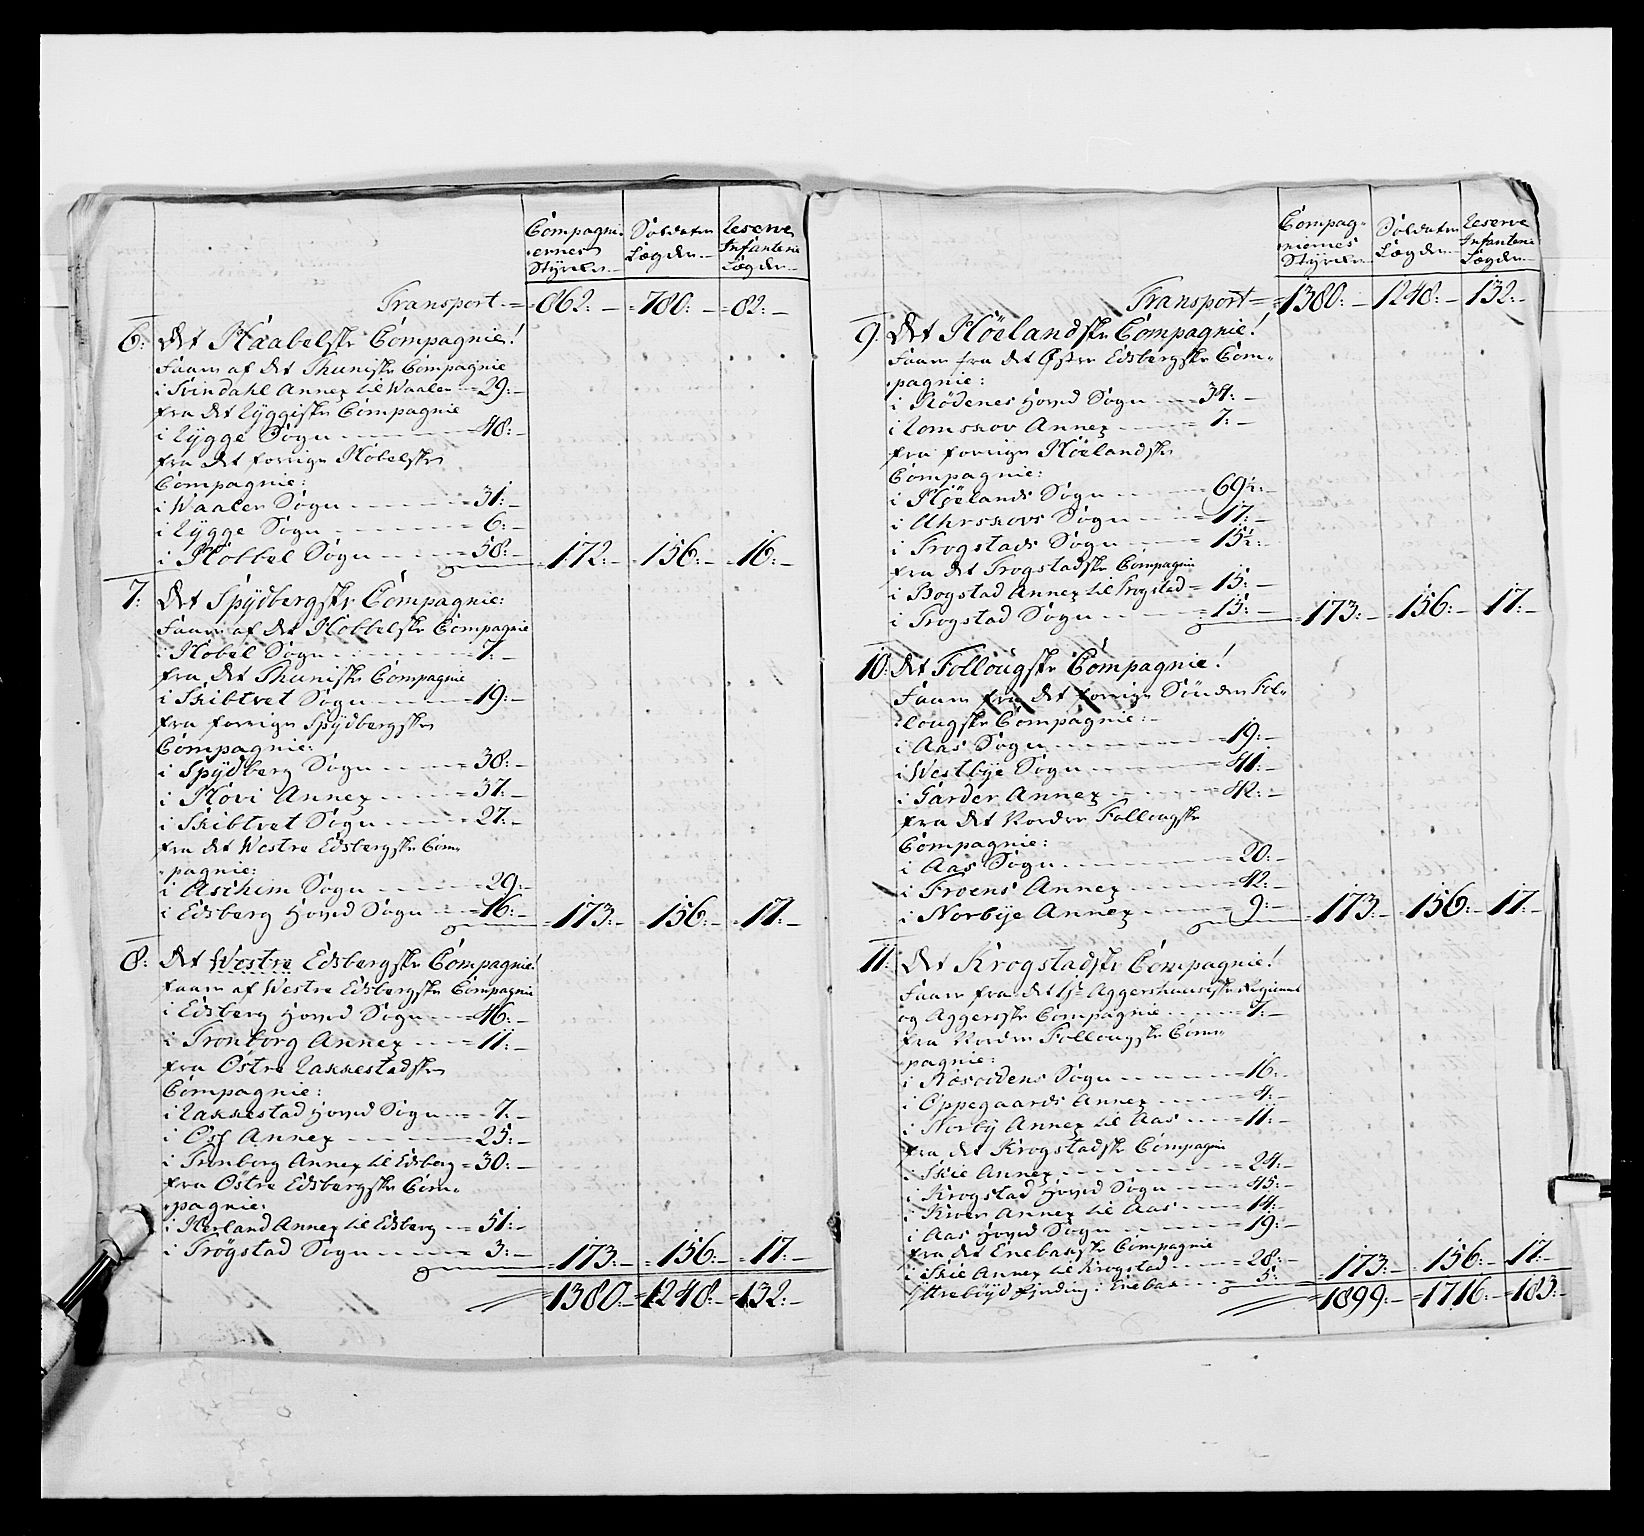 Compagni- Soldater Reserve
ernes Lægder Infanterie
Styrke Lægder
Transport = 862:- 780:- 82:-
6: Det Haabelske Compagnie!
Faaer af det Thuniske Compagnie
i Svindahl Annex til Waaler = 29:-
fra det Ryggiske Compagnie
i Rygge Sogn = 48:-
fra det forrige Hobelske
Compagnie:
i Waaler Sogn = 31:-
i Rygge Sogn = 6:-
i Hobbel Sogn = 58:- 172:- 156:- 16:-
7: Det Spydbergske Compagnie:
Faaer af det Hobbelske Compagnie
i Hobel Sogn 7:-
fra det Thuniske Compagnie
i Skibtvet Sogn = 19:-
fra forrige Spydbergske
Compagnie:
i Spydberg Sogn = 38:-
i Hovi Annex = 37:-
i Skibtvet Sogn = 27:-
fra det Westre Edsbergske Com-
pagnie:
i Aschim Sogn = 29:-
i Edsberg Hoved Sogn = 16:- 173:- 156:- 17:-
8: Det Westre Edsbergske Compagnie!
faaer af Westre Edsbergske Compagnie
i Edsberg Hoved Sogn = 46:-
i Tronborg Annex = 11:-
fra Østre Rakkestadske
Compagnie:
i Rakkestad Hoved Sogn = 7:-
i Oss Annex = 25:-
i Tronborg Annex til Edsberg = 30:-
fra Østre Edsbergske Com-
pagnie:
i Herland Annex til Edsberg = 51:-
i Trøgstad Sogn = 3:- 173:- 156:- 17:-
1380:- 1248:- 132:-
Compag- Soldater Reserve
niernes Lægder Infanterie
Styrke Lægder
Transport = 1380:- 1248:- 132:-
9: Det Høelandske Compagnie!
Faaer fra det Østre Edsbergske Com-
pagnie:
i Rødenes Hoved Sogn 34:-
i Romskov Annex 7:-
fra forrige Høelandske
Compagnie:
i Høelands Sogn 69½:-
i Uhrskovs Sogn 17:-
i Trogstads Sogn 15½:-
fra det Trogstadske Compagnie
i Bogstad Annex til Trogstad = 15:-
i Trogstad Sogn = 15:- 173:- 156:- 17:-
10: Det Follougske Compagnie!
Faaer fra det forrige Sønder Fol-
lougske Compagnie:-
i Aas Sogn = 19:-
i Westbye Sogn = 41:-
i Garder Annex = 42:-
fra det Norder Follougske
Compagnie:
i Aas Sogn = 20:-
i Froens Annex = 42:-
i Norbye Annex = 9:- 173:- 156:- 17:-
11: Det Krogstadske Compagnie!
Faaer fra det 1ste Aggershuusiske Regiment
og Aggerske Compagnie 7:-
fra Norder Follougske Com-
pagnie:
i Næsoddens Sogn = 16:-
i Oppegaards Annex = 4:-
i Norby Annex til Aas = 11:-
fra det Krogstadske Compagnie
i Skie Annex = 24:-
i Krogstad Hoved Sogn = 45:-
i Kroer Annex til Aas = 14:-
i Aas Hoved Sogn = 19:-
fra det Enebakske Compagnie
i Skie Annex til Krogstad = 28:-
Fjerding i Enebak = 5:- 173:- 156:- 17:-
1899:- 1716:- 183:-